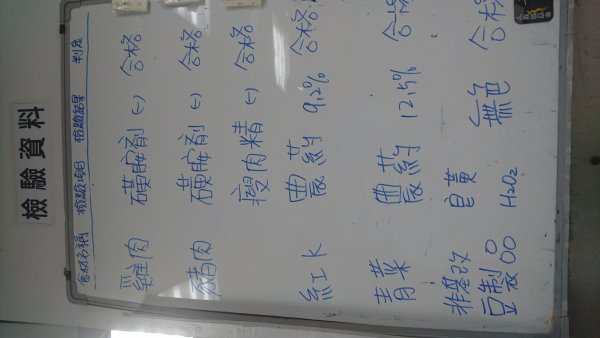 檢驗資料
食材名稱 檢驗項目 檢驗結果 判定
雞肉 磺胺劑 (-) 合格
豬肉 磺胺劑 (-) 合格
瘦肉精 (-) 合格
紅K 農药 9.2% 合格
青菜 農药 12.5% 合格
非基改 皂黃 無色 合格
豆製品 H2O2